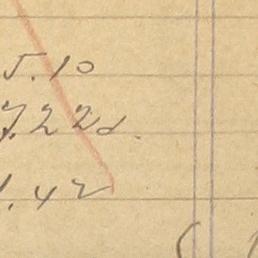 5.10
7.22d.
1.42